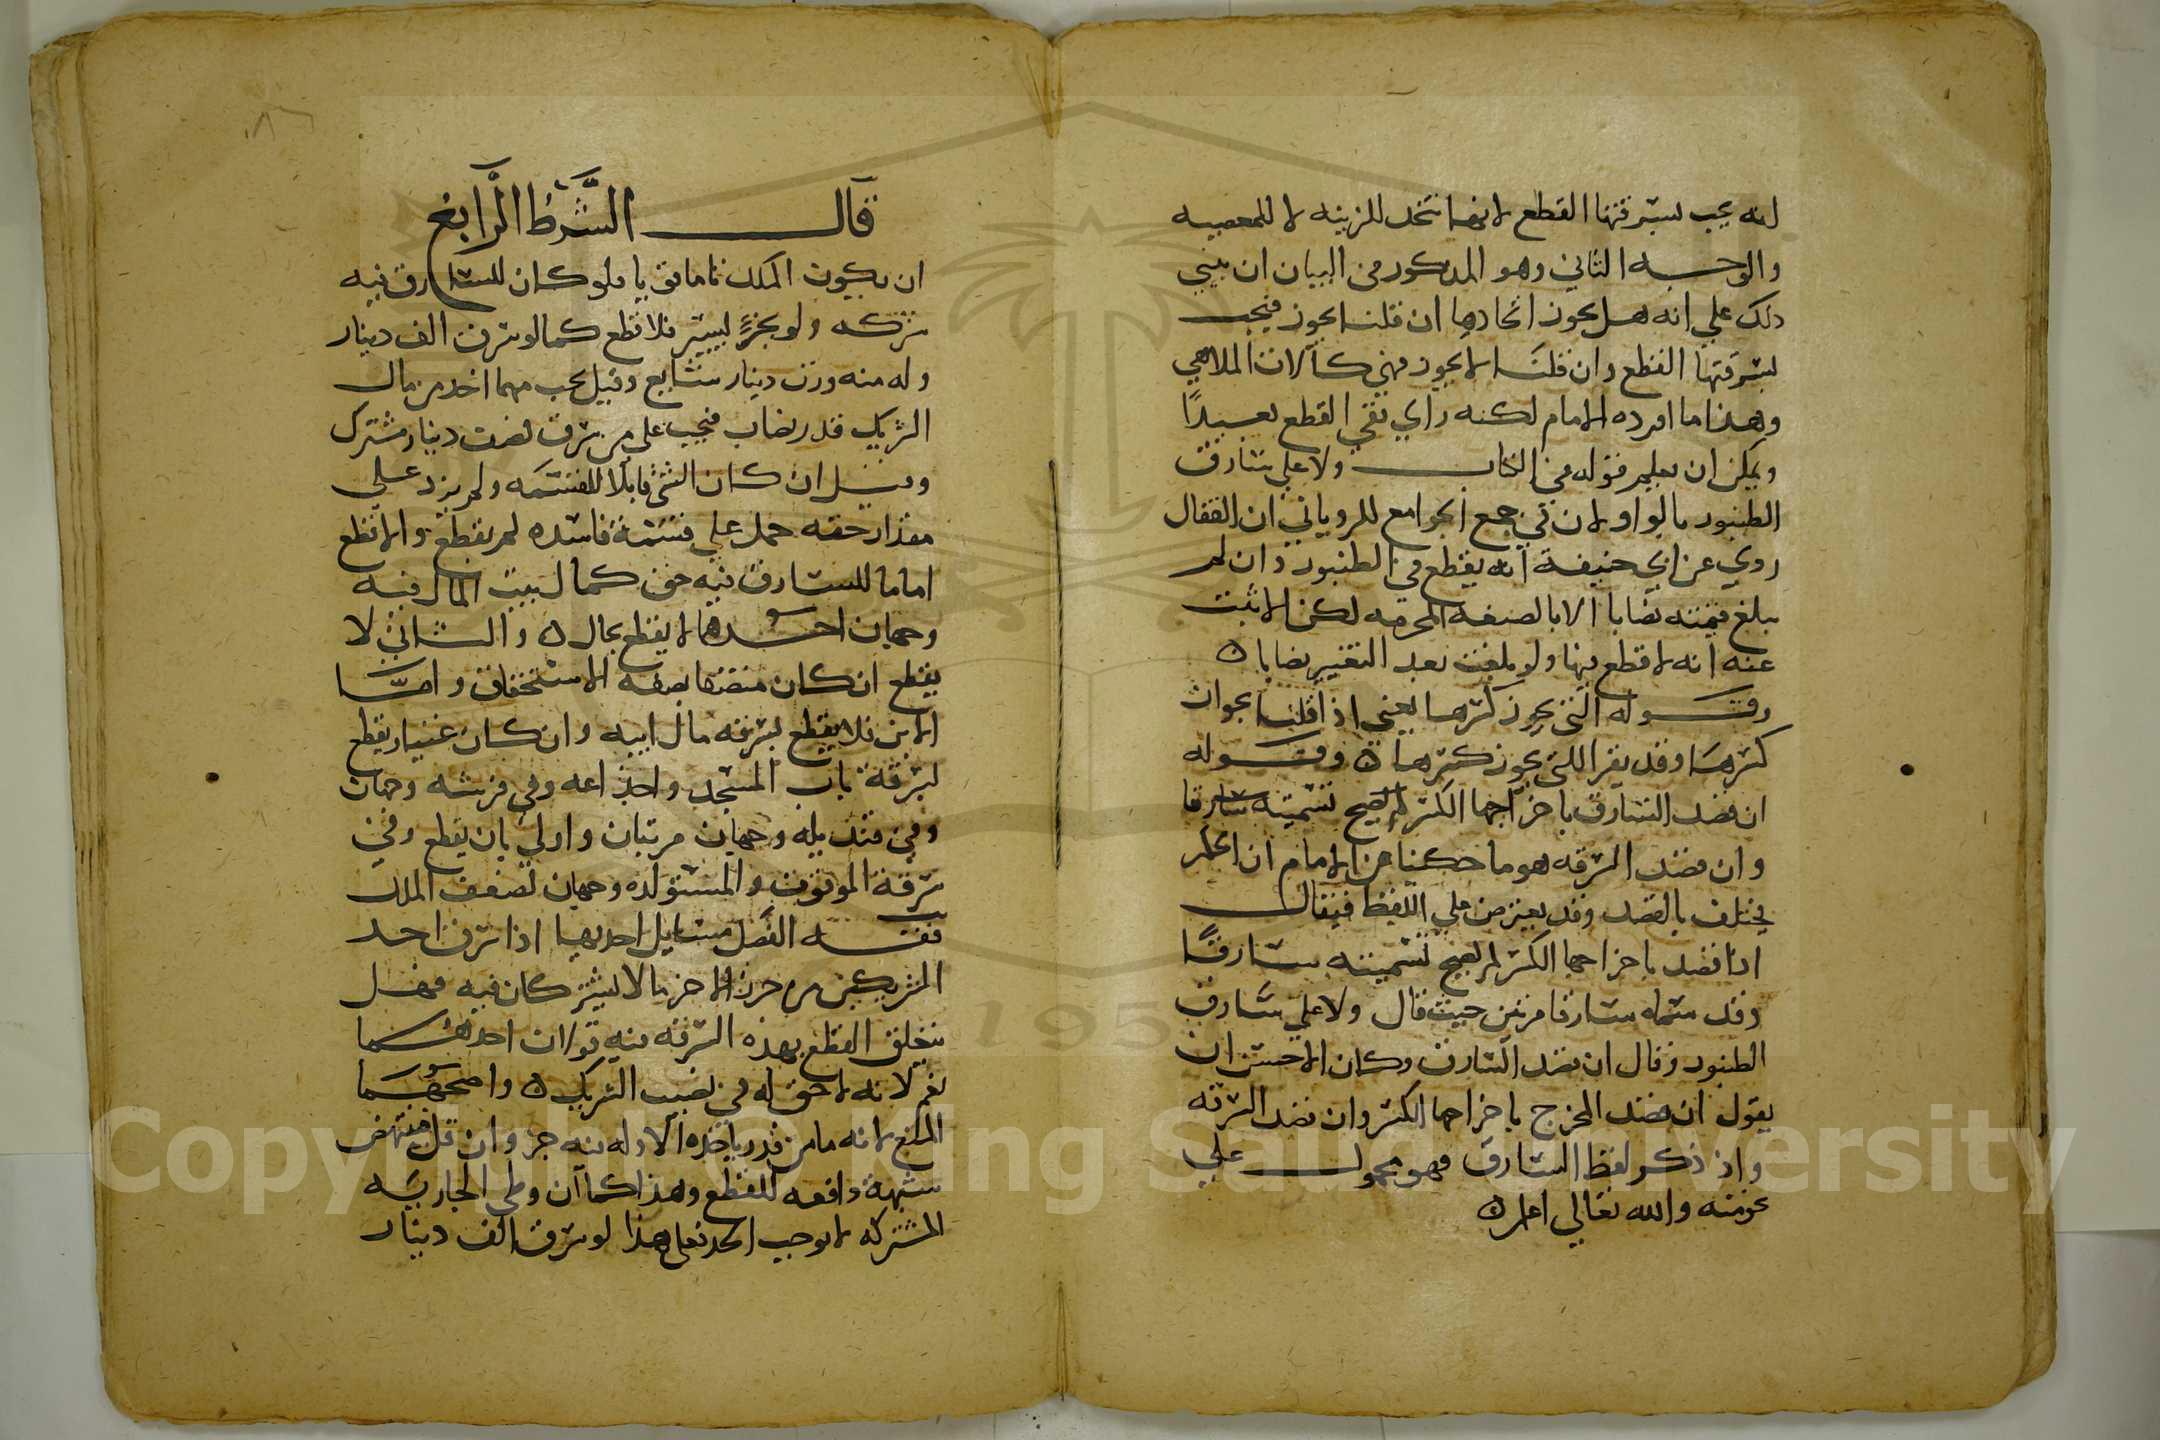 انه يجب بسرقتها القطع لانها تتخذ للزينه لا للمعصيه
والوجـــه الثاني وهو المذكور في البيان ان يبني
ذلك علي انه هل يجوز اتخادها ان قلنا يجوز فيجب
بسرقتها القطع وان قلنا لا يجوز فهي كآلات الملاهي
وهذا ما اورده الامام لكنه راي نفي القطع بعيدًا
ويمكن ان يعلم قوله في الكتاب ولا علي سارق
الطنبور بالواو لان في جمع الجوامع للروياني ان القفال
روي عن ابي حنيفة انه يقطع في الطنبور وان لم
يبلغ قيمته نصابا الا بالصنعه المحرمه لكن الاثبت
عنه انه لا قطع فيها ولو بلغت بعد التغيير نصابا ه
وقـــوله التي يجوز كسرها يعني اذا قلنا بجواز
كسرها وقد يقرا اللتي يجوز كسرها ه وقـــوله
ان قصد السارق باخراجها الكسر لم يصح تسميته سارقا
وان قصد السرقه هو ما حكينا عن الامام ان الحكم
يختلف بالقصد وقد يعترض علي اللفظ فيقال
اذا قصد باخراجها الكسر لم يصح تسميته سارقًا
وقد سماه سارقا مرتين حيث قال ولا علي سارق
الطنبور وقال ان قصد السارق وكان الاحسن ان
يقول ان قصد المخرج باخراجها الكسر وان قصد السرقه
واذ ذكر لفظ السارق فهو محمول علي
عزمته والله تعالي اعلم ه
قال الشَّرْطُ الرَّابِعُ
ان يكون الملك تاما قويا فلو كان للسارق فيه
شركه ولو بجزء يسير فلا قطع كما لو سرق الف دينار
وله منه وزن دينار شايع وقيل يجب مهما اخذ من مال
الشريك قدر نصاب فيجب علي من سرق نصف دينار مشترك
وقيل ان كان الشي قابلا للقسمه ولم يزد علي
مقدار حقه حمل علي قسمة فاسده لم يقطع والا قطع
اما ما للسارق فيه حق كمال بيت المال ففيه
وجهان احـــدهما لا يقطع بحال ه والثاني لا
يقطع ان كان متصفا بصفه الاستحقاق وامَّــا
الابن فلا يقطع بسرقه مال ابيه وان كان غنيا ويقطع
بسرقة باب المسجد واجذاعه وفي فرشه وجهان
وفي قنديله وجهان مرتبان واولي بان يقطع وفي
سرقة الموقوف والمستولده وجهان لضعف الملك
فقـــه الفصل مسايل احديها اذا سرق احد
الشريكين من حرز الاخر مالا يشتركان فيه فهل
يتعلق القطع بهذه السرقه فيه قولان احدهما
نعم لانه لا حق له في نصيب الشريك ه واصحهما
المنع لانه ما من قدر ياخذه الا وله منه جز وان قل فينتهض
شبهة دافعه للقطع وهذا كما ان وطي الجاريه
المشتركه لا يوجب الحد فعلي هذا لو سرق الف دينار
Copyright © King Saud University
195